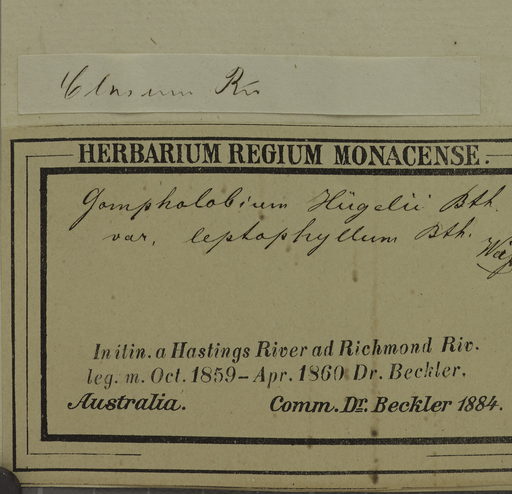 HERBARIUM REGIUM MONACENSE.
Gompholobium Hügelii Bth.
var. leptophyllum Bth.
In itin. a Hastings River ad Richmond Riv.
leg. m. Oct. 1859-Apr. 1860 Dr. Beckler.
Australia. Comm. Dr. Beckler 1884.